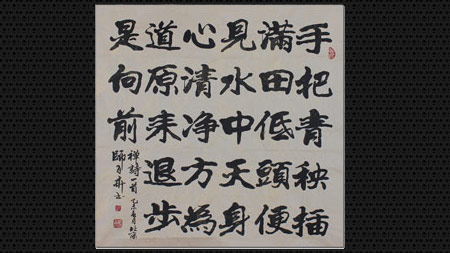 手把青秧插
滿田低頭便
見水中天身
心清净方為
道原来退步
是向前
禪詩一首